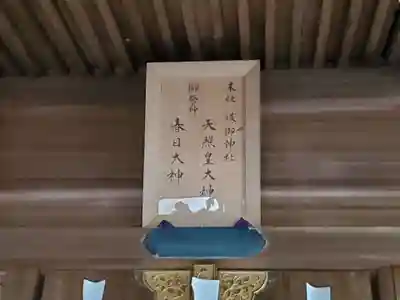 末社 渡御神社
御祭神
天照皇大神
春日大神